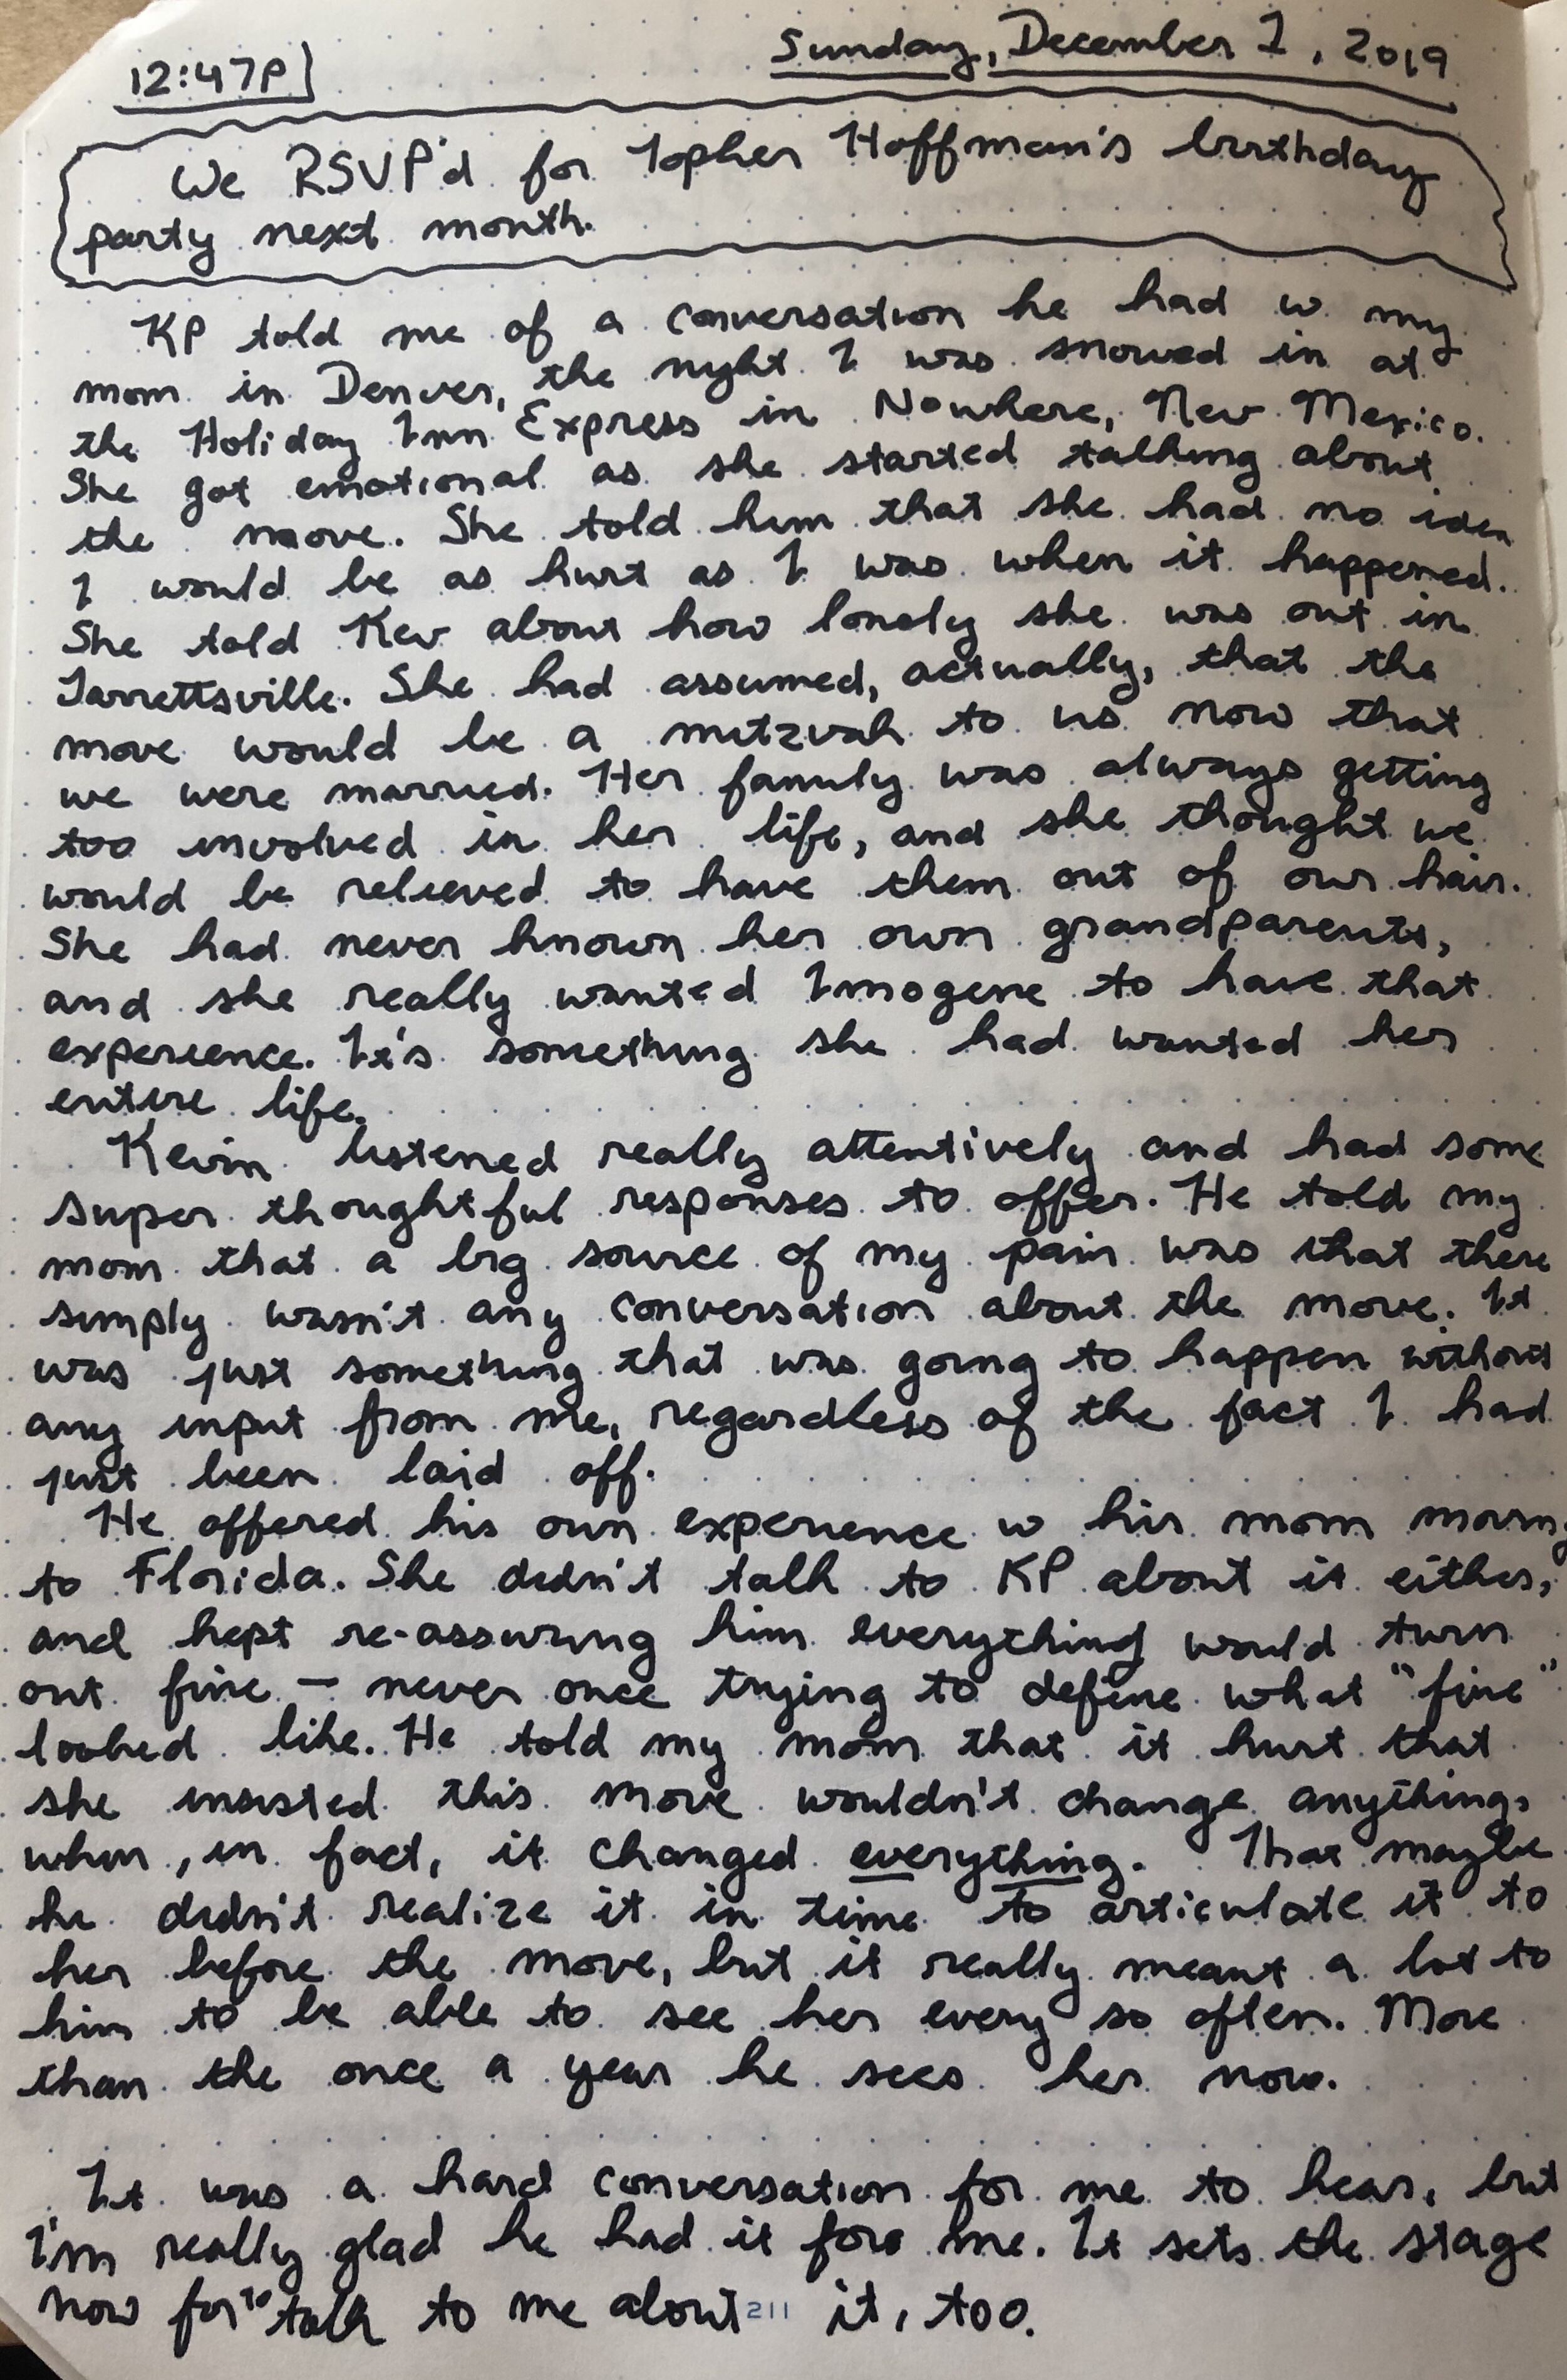 12:47P
Sunday, December 1, 2019
We RSVP'd for Topher Hoffman's birthday
party next month.
KP told me of a conversation he had w my
mom in Denver, the night I was snowed in at
the Holiday Inn Express in Nowhere, New Mexico.
She got emotional as she started talking about
the move. She told him that she had no idea
I would be as hurt as I was when it happened.
She told Kev about how lonely she was out in
Jarrettsville. She had assumed, actually, that the
move would be a mitzvah to us now that
we were married. Her family was always getting
too involved in her life, and she thought we
would be relieved to have them out of our hair.
She had never known her own grandparents,
and she really wanted Imogene to have that
experience. It's something she had wanted her
entire life.
Kevin listened really attentively and had some
super thoughtful responses to offer. He told my
mom that a big source of my pain was that there
simply wasn't any conversation about the move. It
was just something that was going to happen without
any input from me, regardless of the fact I had
just been laid off.
He offered his own experience w his mom moving
to Florida. She didn't talk to KP about it either,
and kept re-assuring him everything would turn
out fine — never once trying to define what "fine"
looked like. He told my mom that it hurt that
she insisted this move wouldn't change anything,
when, in fact, it changed everything. That maybe
he didn't realize it in time to articulate it to
her before the move, but it really meant a lot to
him to be able to see her every so often. More
than the once a year he sees her now.
It was a hard conversation for me to hear, but
I'm really glad he had it for me. It sets the stage
now for to talk to me about it, too.
211